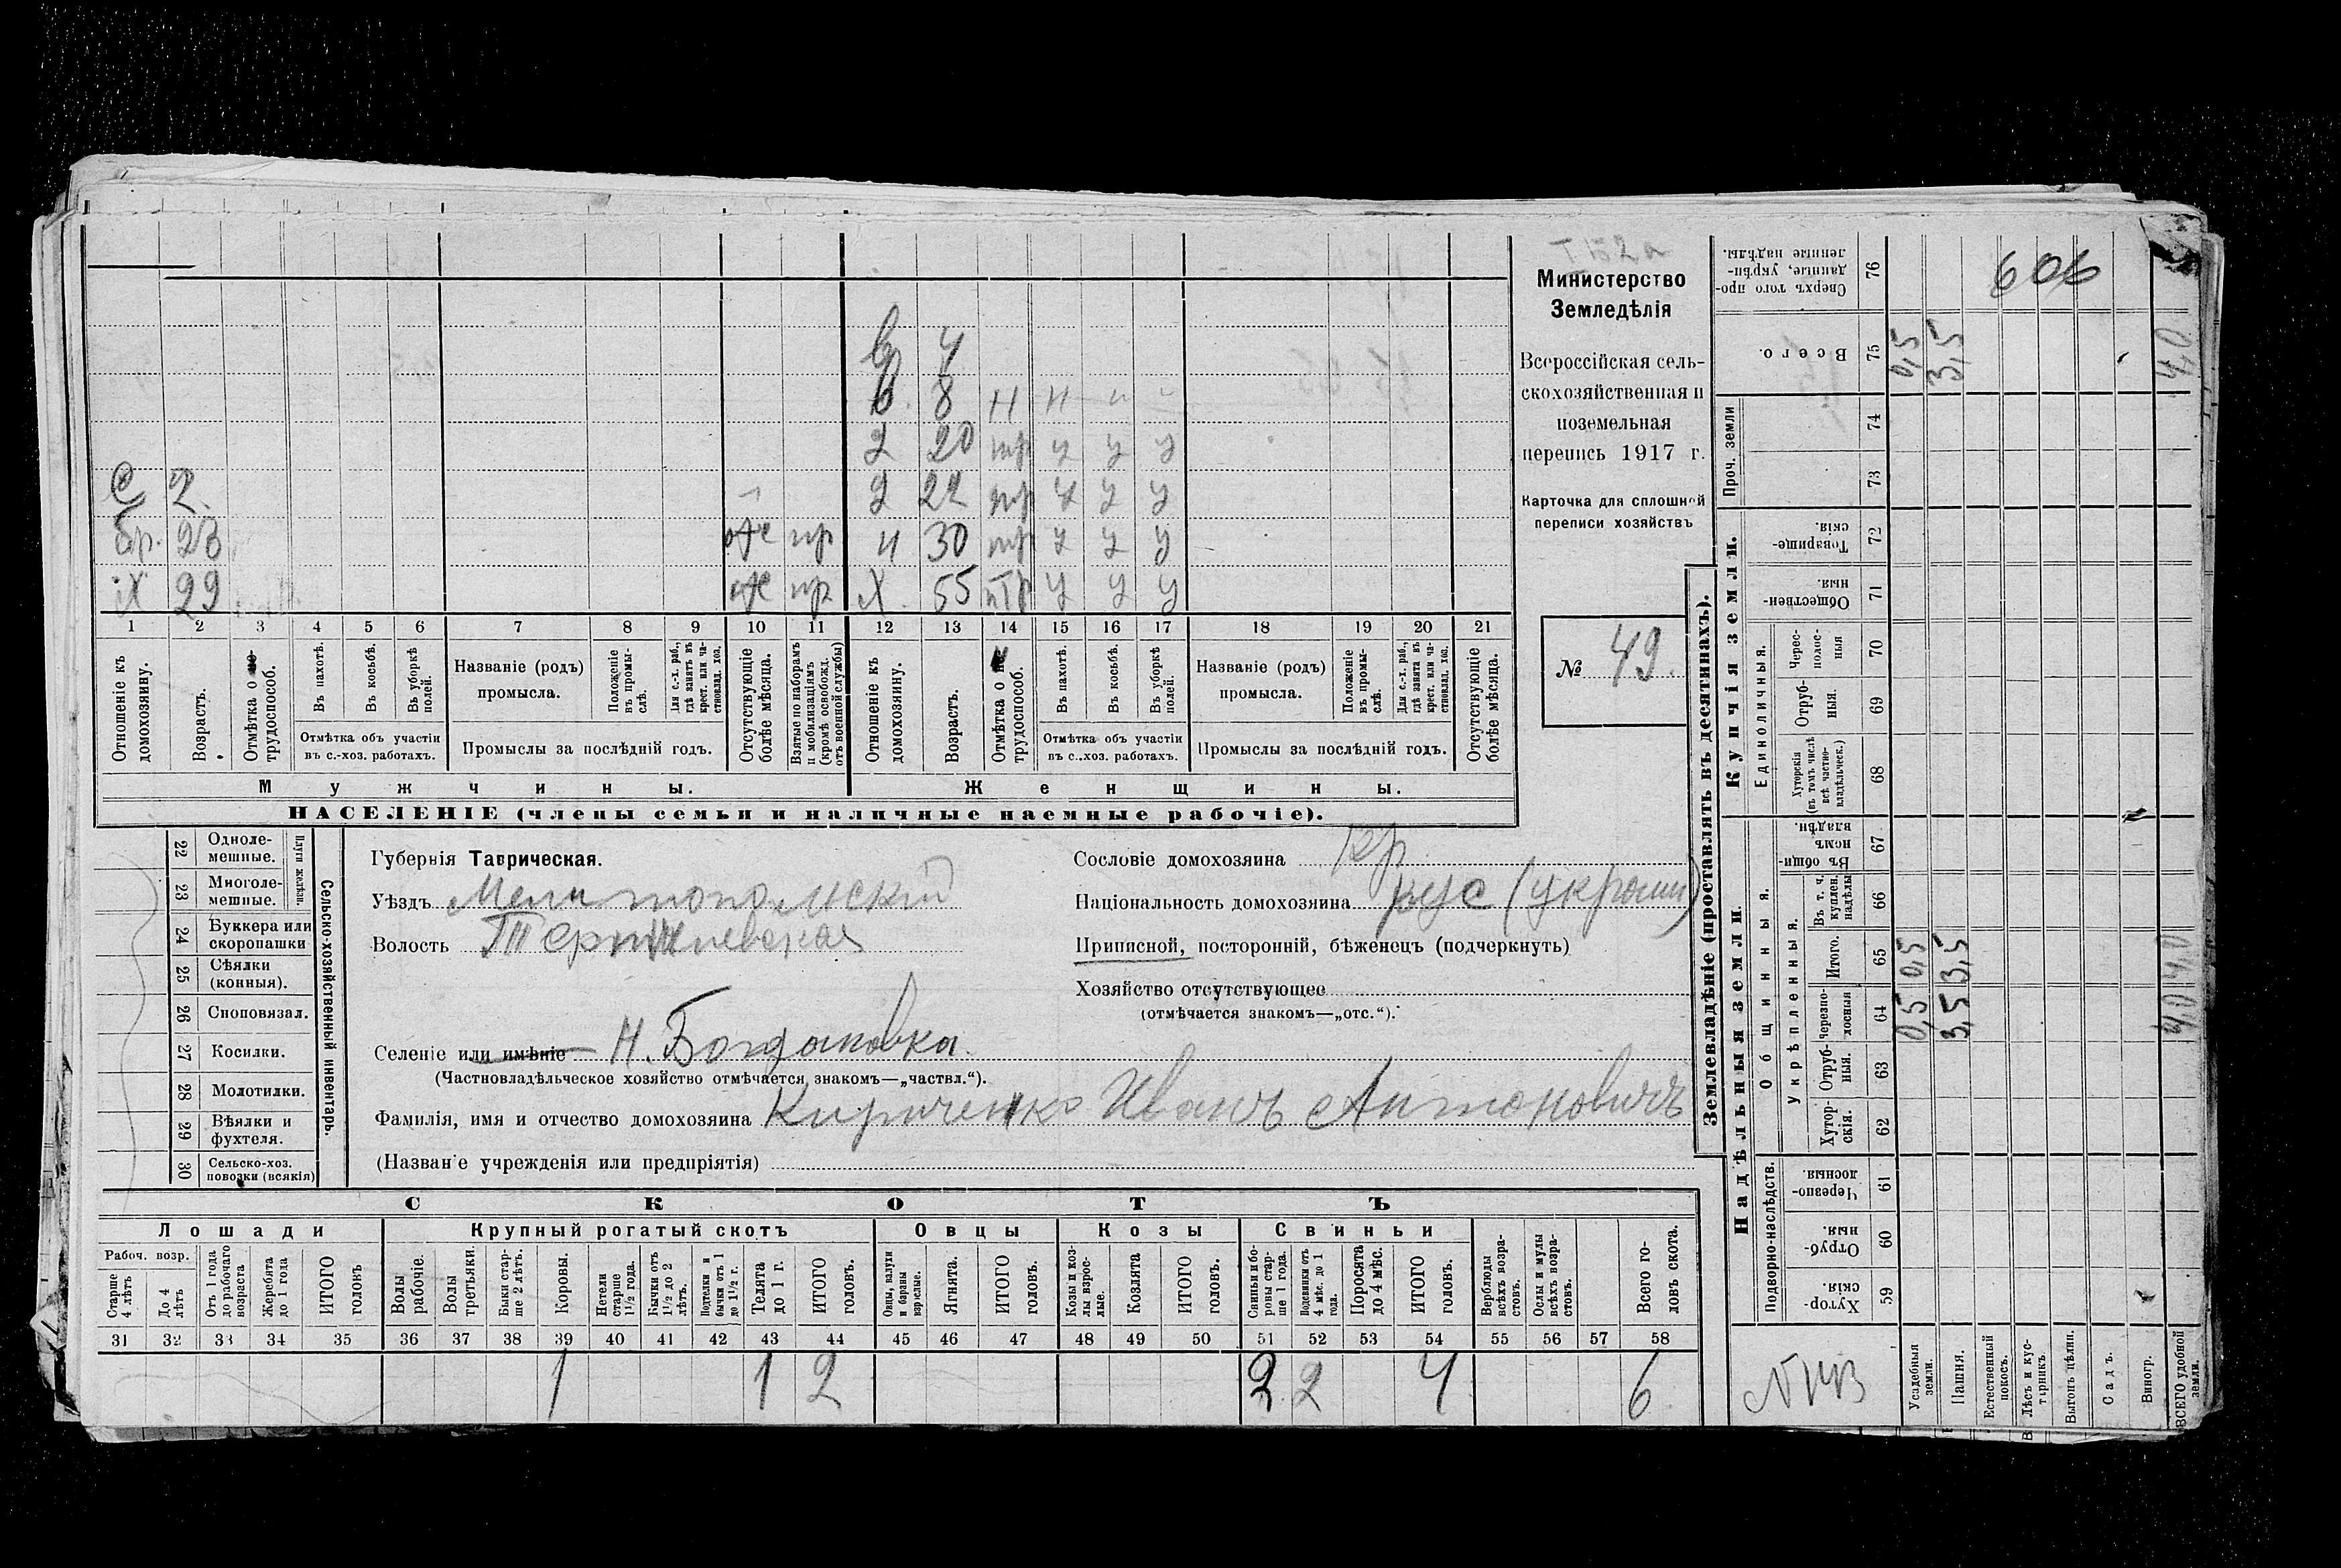 Министерство
Земледѣлія
Всероссійская сель-
скохозяйственная и
поземельная
перепись 1917 г.
Карточка для сплошной
переписи хозяйствъ
№ 49.
606
в 4
в. 8 н н
д 20 тр у у у
С 2. д 22 тр у у у
бр. 23 пр н 30 тр у у у
х 29 пр х. 55 тр у у у
1 2 3 4 5 6 7 8 9 10 11 12 13 14 15 16 17 18 19 20 21
Отношеніе къ домохозяину.
Возрастъ.
Отмѣтка о не- трудоспособ.
Въ пахотѣ.
Въ косьбѣ.
Въ уборкѣ полей.
Отмѣтка объ участіи
въ с.-хоз. работахъ.
Названіе (родъ)
промысла.
Положеніе въ промы- слѣ.
Для с.-х. раб., гдѣ занятъ въ крест. или ча- стновлад. хоз.
Промыслы за послѣдній годъ.
Отсутствующіе болѣе мѣсяца.
Взятые по наборамъ и мобилизаціямъ (кромѣ освобожд. отъ военной службы)
Отношеніе къ домохозяину.
Возрастъ.
Отмѣтка о не трудоспособ.
Въ пахотѣ.
Въ косьбѣ.
Въ уборкѣ полей.
Отмѣтка объ участіи
въ с.-хоз. работахъ.
Названіе (родъ)
промысла.
Положеніе въ промы- слѣ.
Для с.-х. раб., гдѣ занятъ въ крест. или ча- стновлад. хоз.
Промыслы за послѣдній годъ.
Отсутствующіе болѣе мѣсяца.
Мужчины. Женщины.
НАСЕЛЕНІЕ (члены семьи и наличные наемные рабочіе).
22 Одноле- мешные.
23 Многоле- мешные.
Плуги желѣзн.
24 Буккера или скоропашки
25 Сѣялки (конныя).
26 Сноповязал.
27 Косилки.
28 Молотилки.
29 Вѣялки и фухтеля.
30 Сельско-хоз. повозки (всякія)
Сельско-хозяйственный инвентарь.
Губернія Таврическая.
Уѣздъ Мелитопольскій
Волость
Селеніе или имѣніе Н. Богдановка.
(Частновладѣльческое хозяйство отмѣчается знакомъ—„частвл.“).
Фамилія, имя и отчество домохозяина Кириченко Иванъ Антоновичъ
(Названіе учрежденія или предпріятія)
Сословіе домохозяина кр
Національность домохозяина рус (украин)
Приписной, посторонній, бѣженецъ (подчеркнуть)
Хозяйство отсутствующее
(отмѣчается знакомъ—„отс.“).
СКОТЪ
Лошади Крупный рогатый скотъ Овцы Козы Свиньи
Рабоч. возр.
Старше 4 лѣтъ
До 4 лѣтъ
Отъ 1 года до рабочаго возраста
Жеребята до 1 года
ИТОГО головъ
Волы рабочіе.
Волы третьяки.
Быки стар- ше 2 лѣтъ.
Коровы.
Нетели старше 1½ года.
Бычки отъ 1½ до 2 лѣтъ.
Подтелки и бычки отъ 1 до 1½ г.
Телята до 1 г.
ИТОГО головъ.
Овцы, валухи и бараны взрослые.
Ягнята.
ИТОГО головъ.
Козы и коз- лы взрос- лые.
Козлята
ИТОГО головъ.
Свиньи и бо- ровы стар- ше 1 года.
Подсвинки отъ 4 мѣс. до 1 года.
Поросята до 4 мѣс.
ИТОГО головъ.
Верблюды всѣхъ возра- стовъ.
Ослы и мулы всѣхъ возра- стовъ.
Всего го- ловъ скота.
31 32 33 34 35 36 37 38 39 40 41 42 43 44 45 46 47 48 49 50 51 52 53 54 55 56 57 58
1 1 2 2 2 4 6
Землевладѣніе (проставлять въ десятинахъ).
Надѣльныя земли. Купчія земли. Проч. земли
Подворно-наслѣдств. Общинныя. Укрѣпленныя. Единоличныя.
Сверхъ того про- данные, укрѣп- ленные надѣлы. 76
Всего. 75 0,5 3,5 4,0
74
73
Товарище- скія. 72
Обществен- ныя. 71
Черес- полос- ныя 70
Отруб- ныя. 69
Хуторскія (въ томъ числѣ всѣ частно- владѣльческ.) 68
Въ общин- номъ владѣн. 67
Въ т. ч. куплен. надѣлы 66
Итого. 65 0,5 3,5 4,0
Черезпо- лосныя 64 0,5 3,5 4,0
Отруб- ныя. 63
Хутор- скія. 62
Черезпо- лосныя 61
Отруб- ныя. 60
Хутор- скія. 59
Усадебныя земли.
Пашня.
Естественный покосъ.
Лѣсъ и кус- тарникъ.
Выгонъ цѣлин.
Садъ.
Виногр.
ВСЕГО удобной земли.